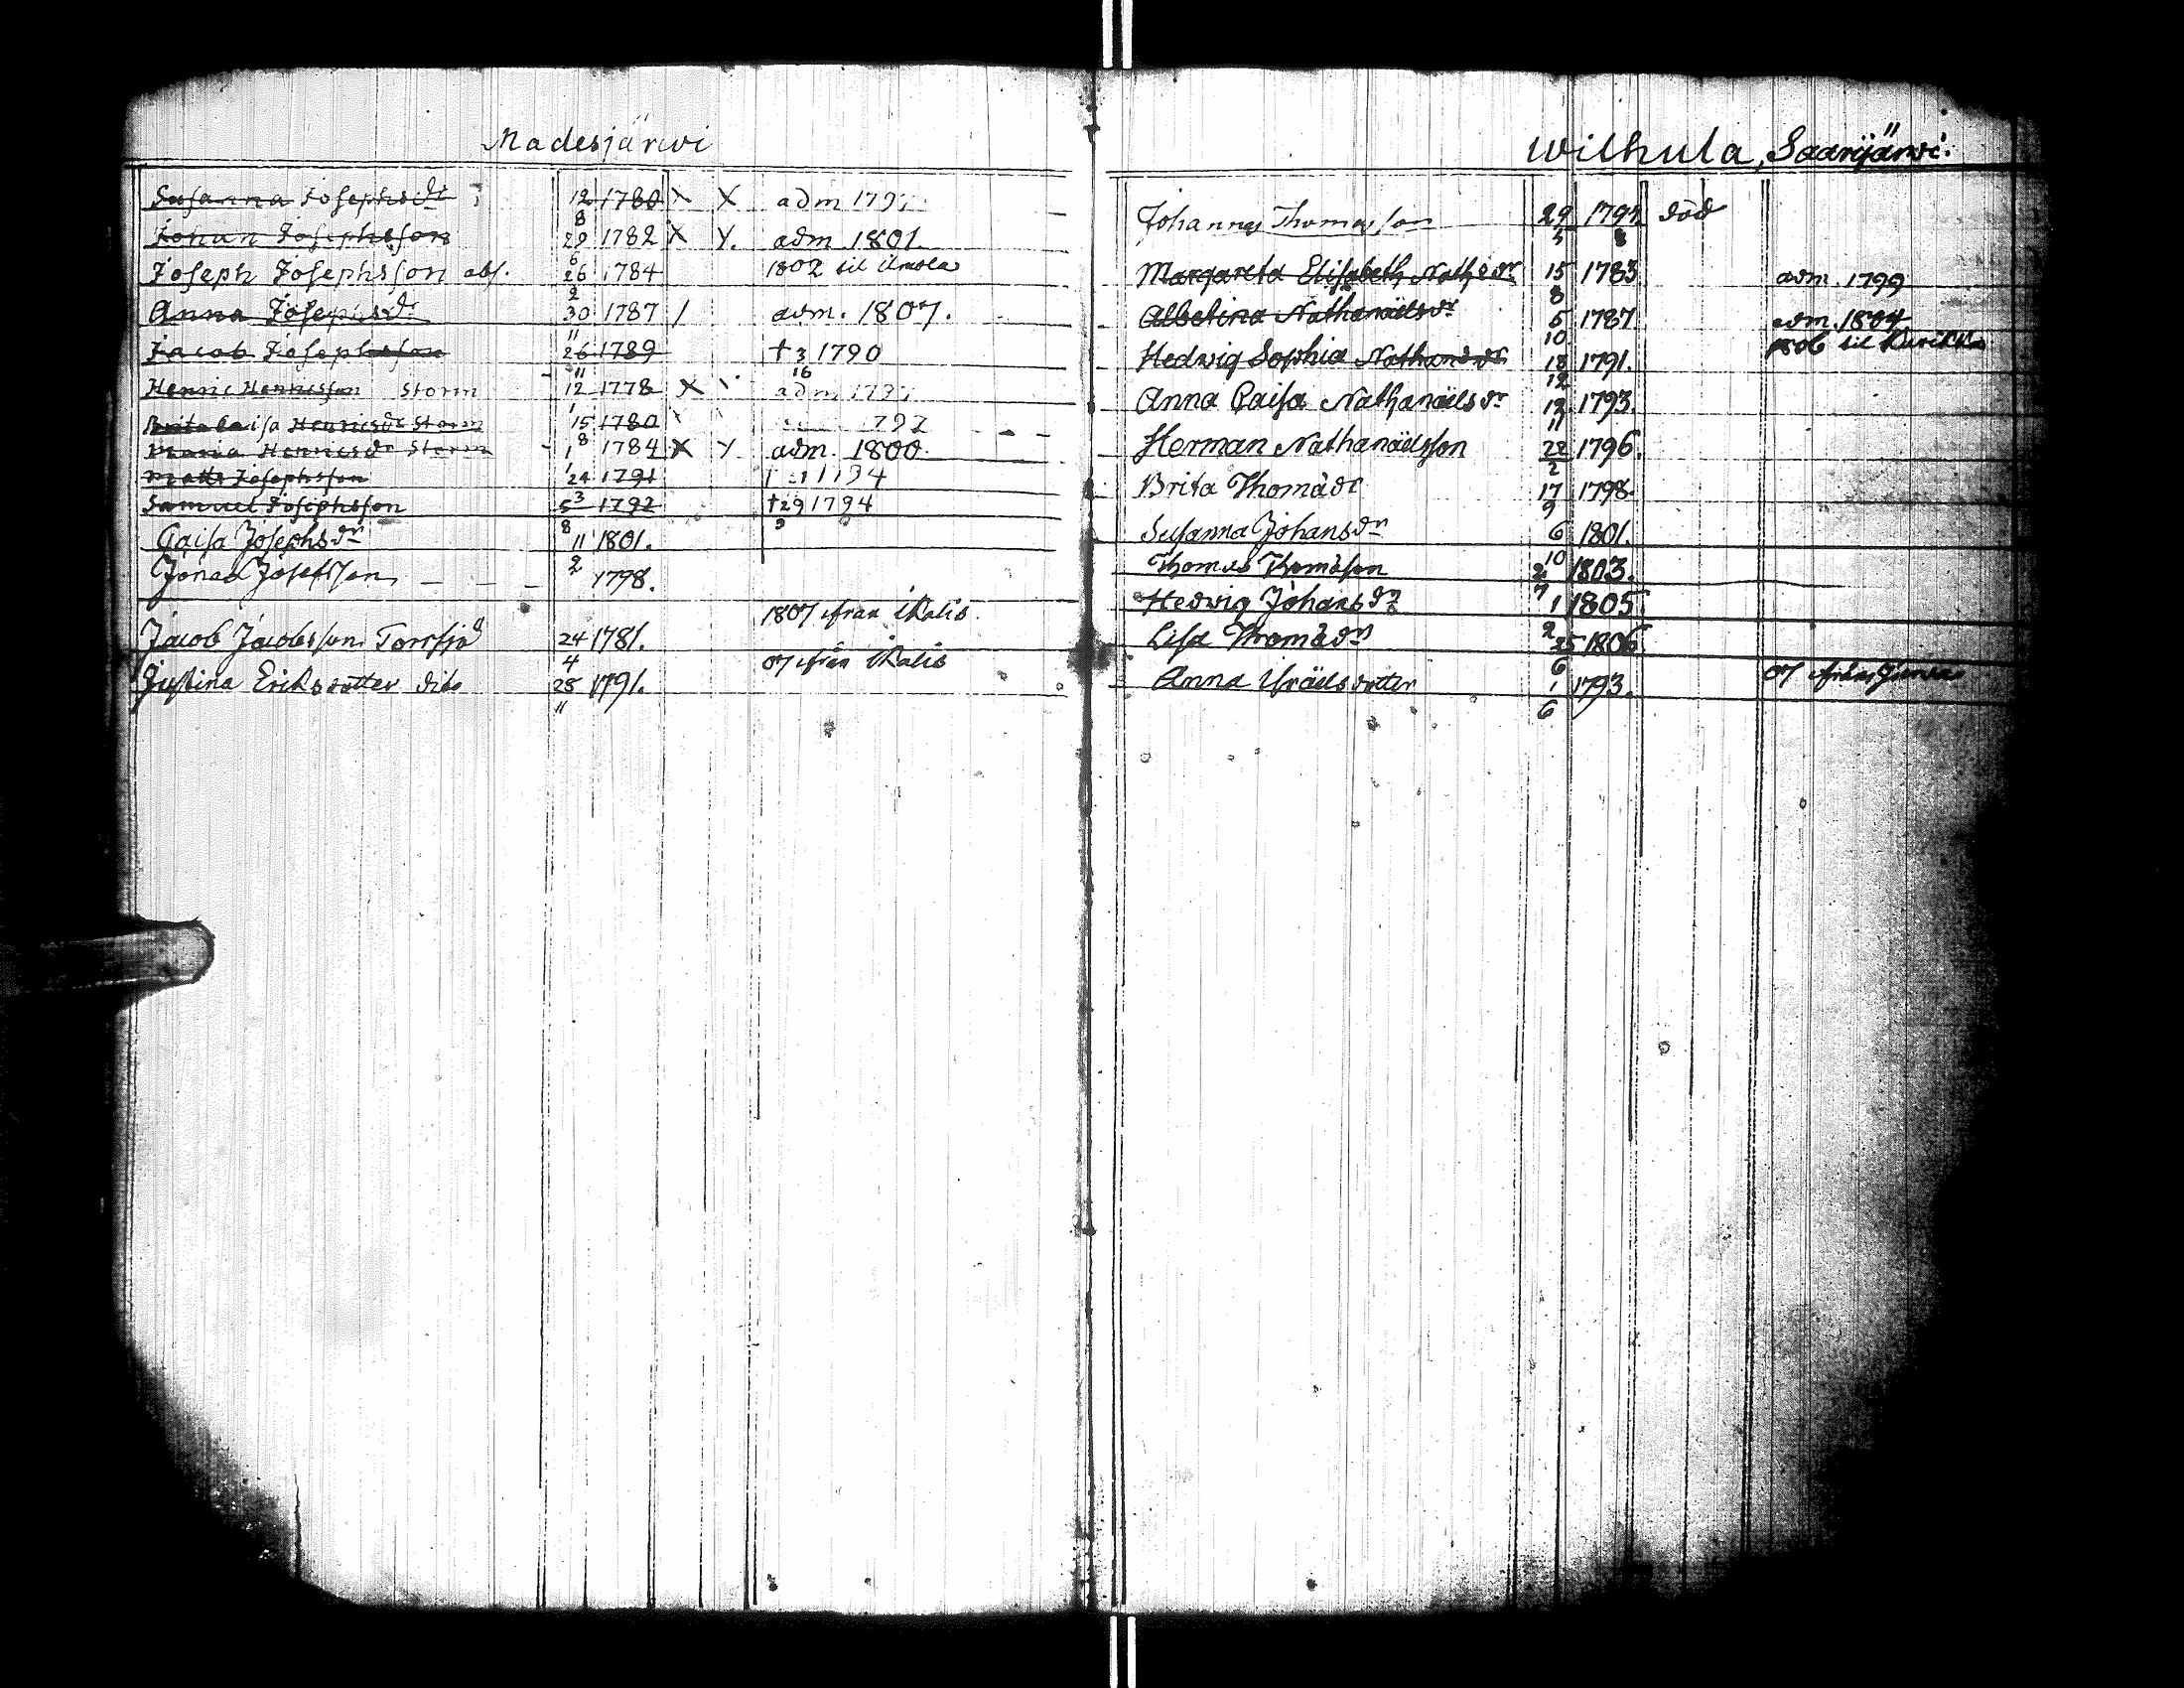 Madesjärwi
Susanna Josephsdr 12/8 1780 X X adm 179
Johan Josephsson 29/6 1782 X Y. adm 1801
Joseph Josephsson abs. 26/2 1784 1802 til
Anna Josephsdr 30/11 1787 / adm. 1807.
Jacob Josephsson 26/11 1789 † 3/16 1790
Henric Henricsson Storm 12/1 1778 X adm 179
Brita Caisa Henricsdr Storm 15/8 1780 792
Maria Henricsdr Storm 1/1 1784 X Y adm. 1800.
Matts Josephsson 24/3 1791 1794
Samuel Josephsson 5/8 1792 † 29/9 1794
Caisa Josephsdr 11/2 1801.
Jonas Josefsson 1798.
Jacob Jacobsson Torrsjö 24/4 1781. 1807 ifrån Ikalis.
Justina Eriksdotter dito 25/11 1791. 07 ifrån Ikalis
Wilhula, Saarijärwi.
Johannes Thomasson 29 1794 död
Margareta Elisabeth Nathsdr 15/8 1783 adm. 1799
Albetina Nathanaëlsdr 5/10 1787 adm. 1804
1806 til
Hedwig Sophia 18/12 1791.
Anna Caisa Nathanaëlsdr 12/11 1793.
Herman Nathanaëlsson 22/2 1796.
Brita Thomædr 17/9 1798.
Susanna Johansdr 6/10 1801.
Thomas Thomasson 2/7 1803.
Hedwig Johansdr 1/2 1805
Lisa Thomædr 25/6 1806
Anna Israëlsdotter 1/6 1793. 07 ifrån